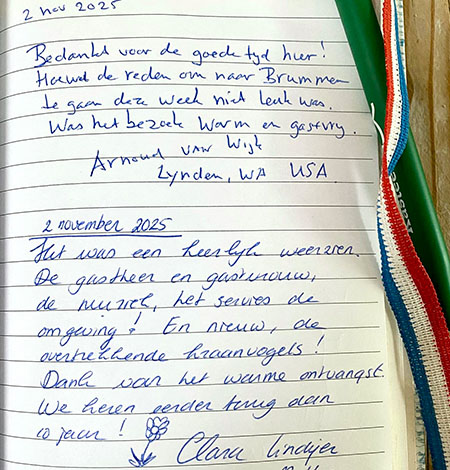 2 nov 2025
Bedankt voor de goede tyd hier!
Hoewel de reden om naar Brummen
te gaan deze week niet leuk was.
Was het bezoek Warm en gastvry.
Arnoud van Wijk
Lynden, WA USA.
2 november 2025
Het was een heerlijk weerzien.
De gastheer en gastvrouw,
de muziek, het servies de
omgeving! En nieuw, de
overtrekkende kraanvogels!
Dank voor het warme ontvangst.
We keren eerder terug dan
10 jaar!
Clara Lindijer